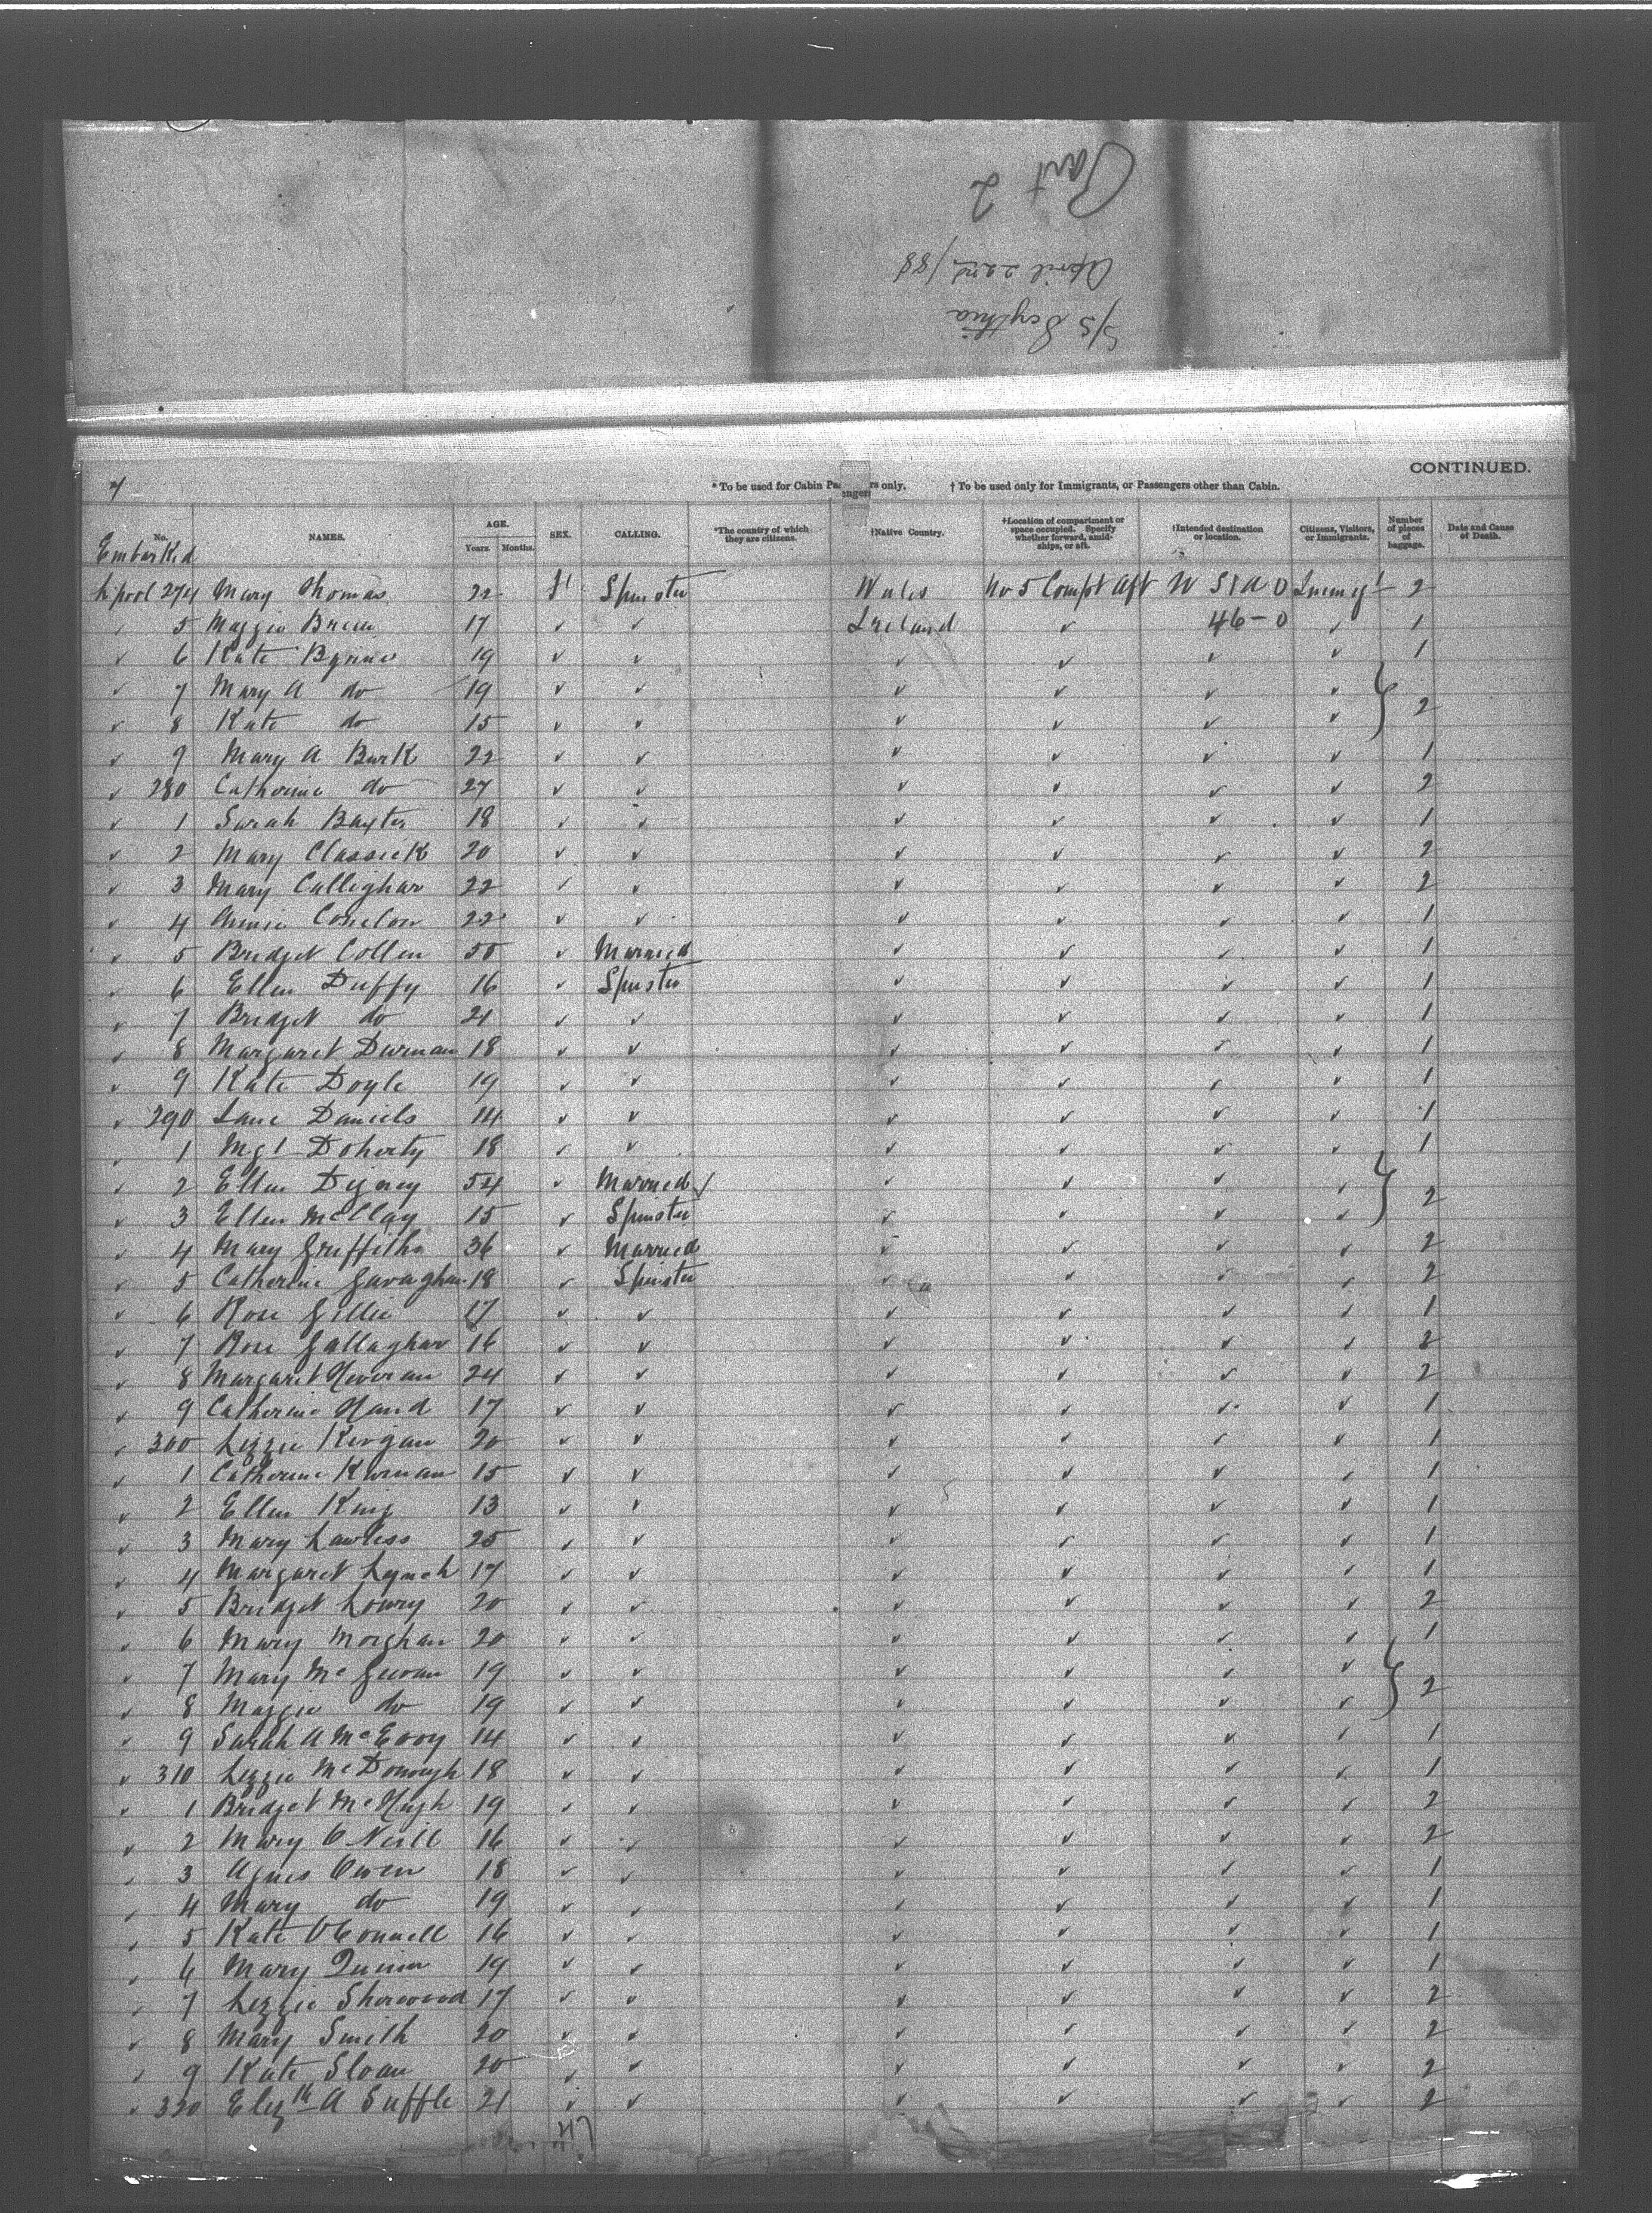 Part 2
April 22nd /88
S/S Scythia
CONTINUED.
7 * To be used for Cabin Passengers only. † To be used only for Immigrants, or Passengers other than Cabin.
No. NAMES. AGE. Years. Months. SEX. CALLING. *The country of which they are citizens. †Native Country. †Location of compartment or space occupied. Specify whether forward, amidships, or aft. †Intended destination or location. Citizens, Visitors, or Immigrants. Number of pieces of baggage. Date and Cause of Death.
Embarked
L'pool 274 Mary Thomas 22 f Spinster Wales No 5 Compt Aft U S A Immigt 2
✓ 5 Maggie 17 ✓ ✓ Ireland ✓ 46-0 ✓ 1
✓ 6 Kate Byrne 19 ✓ ✓ ✓ ✓ ✓ ✓ 1
✓ 7 Mary A do 19 ✓ ✓ ✓ ✓ ✓ ✓
✓ 8 Kate do 15 ✓ ✓ ✓ ✓ ✓ ✓ 2
✓ 9 Mary A Burk 22 ✓ ✓ ✓ ✓ ✓ ✓ 1
✓ 280 Catherine do 27 ✓ ✓ ✓ ✓ ✓ ✓ 2
✓ 1 Sarah Baxter 18 ✓ ✓ ✓ ✓ ✓ ✓ 1
✓ 2 Mary Classick 20 ✓ ✓ ✓ ✓ ✓ ✓ 2
✓ 3 Mary Callighan 22 ✓ ✓ ✓ ✓ ✓ ✓ 2
✓ 4 Annie Conelon 22 ✓ ✓ ✓ ✓ ✓ ✓ 1
✓ 5 Bridget Collen 50 ✓ Married ✓ ✓ ✓ ✓ 1
✓ 6 Ellen Duffy 16 ✓ Spinster ✓ ✓ ✓ ✓ 1
✓ 7 Bridget do 21 ✓ ✓ ✓ ✓ ✓ ✓ 1
✓ 8 Margaret Durnan 18 ✓ ✓ ✓ ✓ ✓ ✓ 1
✓ 9 Kate Doyle 19 ✓ ✓ ✓ ✓ ✓ ✓ 1
✓ 290 Jane Daniels 14 ✓ ✓ ✓ ✓ ✓ ✓ 1
✓ 1 Mgt Doherty 18 ✓ ✓ ✓ ✓ ✓ ✓ 1
✓ 2 Ellen 54 ✓ Married ✓ ✓ ✓ ✓
✓ 3 Ellen McClay 15 ✓ Spinster ✓ ✓ ✓ ✓ 2
✓ 4 Mary Griffiths 36 ✓ Married ✓ ✓ ✓ ✓ 2
✓ 5 Catherine Gavaghan 18 ✓ Spinster ✓ ✓ ✓ ✓ 2
✓ 6 Rose Gillic 17 ✓ ✓ ✓ ✓ ✓ ✓ 1
✓ 7 Rose Gallaghar 16 ✓ ✓ ✓ ✓ ✓ ✓ 2
✓ 8 Margaret Heveran 24 ✓ ✓ ✓ ✓ ✓ ✓ 2
✓ 9 Catherine Hand 17 ✓ ✓ ✓ ✓ ✓ ✓ 1
✓ 300 Lizzie Kirgan 20 ✓ ✓ ✓ ✓ ✓ ✓ 1
✓ 1 Catherine Kirnan 15 ✓ ✓ ✓ ✓ ✓ ✓ 1
✓ 2 Ellen King 13 ✓ ✓ ✓ ✓ ✓ ✓ 1
✓ 3 Mary Lawless 25 ✓ ✓ ✓ ✓ ✓ ✓ 1
✓ 4 Margaret Lynch 17 ✓ ✓ ✓ ✓ ✓ ✓ 1
✓ 5 Bridget Lowry 20 ✓ ✓ ✓ ✓ ✓ ✓ 2
✓ 6 Mary Morghan 20 ✓ ✓ ✓ ✓ ✓ ✓ 1
✓ 7 Mary McGuvan 19 ✓ ✓ ✓ ✓ ✓ ✓
✓ 8 Maggie do 19 ✓ ✓ ✓ ✓ ✓ ✓ 2
✓ 9 Sarah A McEvoy 14 ✓ ✓ ✓ ✓ ✓ ✓ 1
✓ 310 Lizzie McDonough 18 ✓ ✓ ✓ ✓ ✓ ✓ 1
✓ 1 Bridget McHugh 19 ✓ ✓ ✓ ✓ ✓ ✓ 2
✓ 2 Mary O Neill 16 ✓ ✓ ✓ ✓ ✓ ✓ 2
✓ 3 Agnes Owen 18 ✓ ✓ ✓ ✓ ✓ ✓ 1
✓ 4 Mary do 19 ✓ ✓ ✓ ✓ ✓ ✓ 1
✓ 5 Kate OConnell 16 ✓ ✓ ✓ ✓ ✓ ✓ 1
✓ 6 Mary Quinn 19 ✓ ✓ ✓ ✓ ✓ ✓ 1
✓ 7 Lizzie Sherwood 17 ✓ ✓ ✓ ✓ ✓ ✓ 2
✓ 8 Mary Smith 20 ✓ ✓ ✓ ✓ ✓ ✓ 2
✓ 9 Kate Sloan 20 ✓ ✓ ✓ ✓ ✓ ✓ 2
✓ 320 Elizth A Suffle 21 ✓ ✓ ✓ ✓ ✓ ✓ 2
47